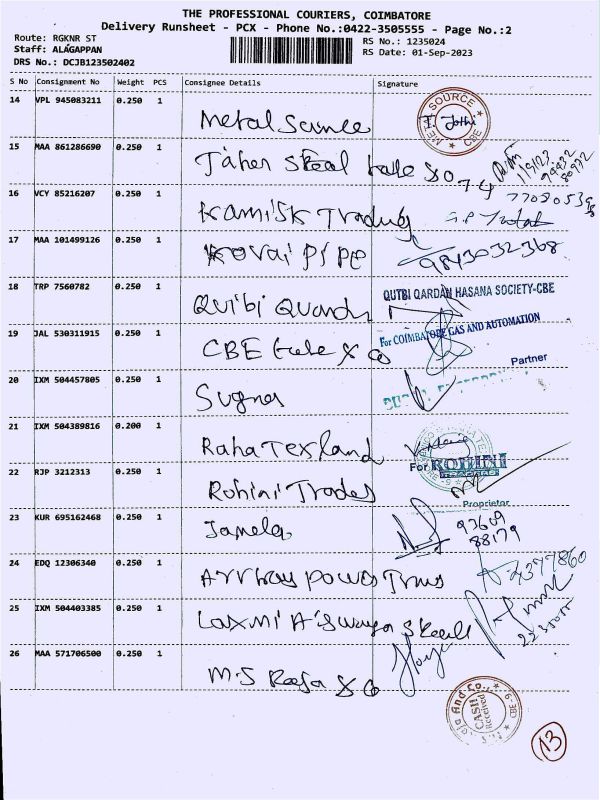 THE PROFESSIONAL COURIERS, COIMBATORE
Delivery Runsheet - PCX - Phone No.:0422-3505555 - Page No.:2
Route: RGKNR ST
Staff: ALAGAPPAN
DRS No.: DCJB123502402
RS No.: 1235024
RS Date: 01-Sep-2023
S No Consignment No Weight PCS Consignee Details Signature
14 VPL 945083211 0.250 1 Metal Source
SOURCE
T. Jothi
CBE
15 MAA 861286690 0.250 1 Taher Steel tube & Co 74
1/9/23
16 VCY 85216207 0.250 1 Kamisk Trading
17 MAA 101499126 0.250 1 Kovai Pipe 9843032368
18 TRP 7560782 0.250 1 Quibi Quardh
QUTBI QARDAN HASANA SOCIETY-CBE
19 JAL 530311915 0.250 1 CBE tube & Co
For COIMBATORE GAS AND AUTOMATION
Partner
20 IXM 504457805 0.250 1 Suguna
21 IXM 504389816 0.200 1 Raha Texland
22 RJP 3212313 0.250 1 Rohini Trades
For ROHINI
Proprietor
23 KUR 695162468 0.250 1 Jamela
93609
88179
24 EDQ 12306340 0.250 1
25 IXM 504403385 0.250 1 Laxmi Aiswarya Steell
26 MAA 571706500 0.250 1 M.S Raja & Co
Raja And Co.,
CASH
Received
CBE-9
13